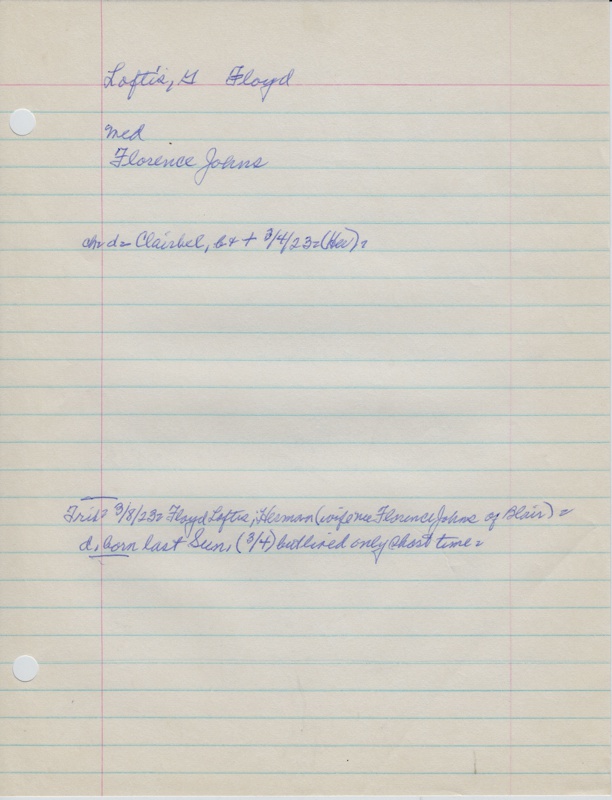 Loftis, G Floyd
med
Florence Johns
ch= d= Clairbel, b & + 3/4/23=(Her)=
Trib= 3/8/23= Floyd Loftis, Herman (wife nee Florence Johns of Blair) =
d, born last Sun, (3/4) but lived only short time=